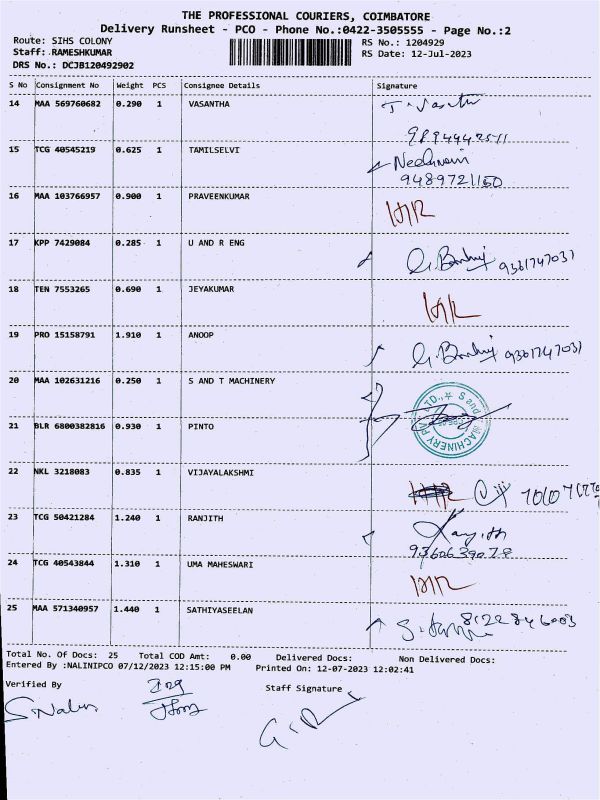 THE PROFESSIONAL COURIERS, COIMBATORE
Delivery Runsheet - PCO - Phone No.:0422-3505555 - Page No.:2
Route: SIHS COLONY RS No.: 1204929
Staff: RAMESHKUMAR RS Date: 12-Jul-2023
DRS No.: DCJB120492902
S No Consignment No Weight PCS Consignee Details Signature
14 MAA 569760682 0.290 1 VASANTHA
15 TCG 40545219 0.625 1 TAMILSELVI
9489721150
16 MAA 103766957 0.900 1 PRAVEENKUMAR
17 KPP 7429084 0.285 1 U AND R ENG 9361747031
18 TEN 7553265 0.690 1 JEYAKUMAR
19 PRO 15158791 1.910 1 ANOOP 9361747031
20 MAA 102631216 0.250 1 S AND T MACHINERY
21 BLR 6800382816 0.930 1 PINTO
22 NKL 3218083 0.835 1 VIJAYALAKSHMI
23 TCG 50421284 1.240 1 RANJITH
9360639078
24 TCG 40543844 1.310 1 UMA MAHESWARI
25 MAA 571340957 1.440 1 SATHIYASEELAN
Total No. Of Docs: 25 Total COD Amt: 0.00 Delivered Docs: Non Delivered Docs:
Entered By :NALINIPCO 07/12/2023 12:15:00 PM Printed On: 12-07-2023 12:02:41
Verified By Staff Signature